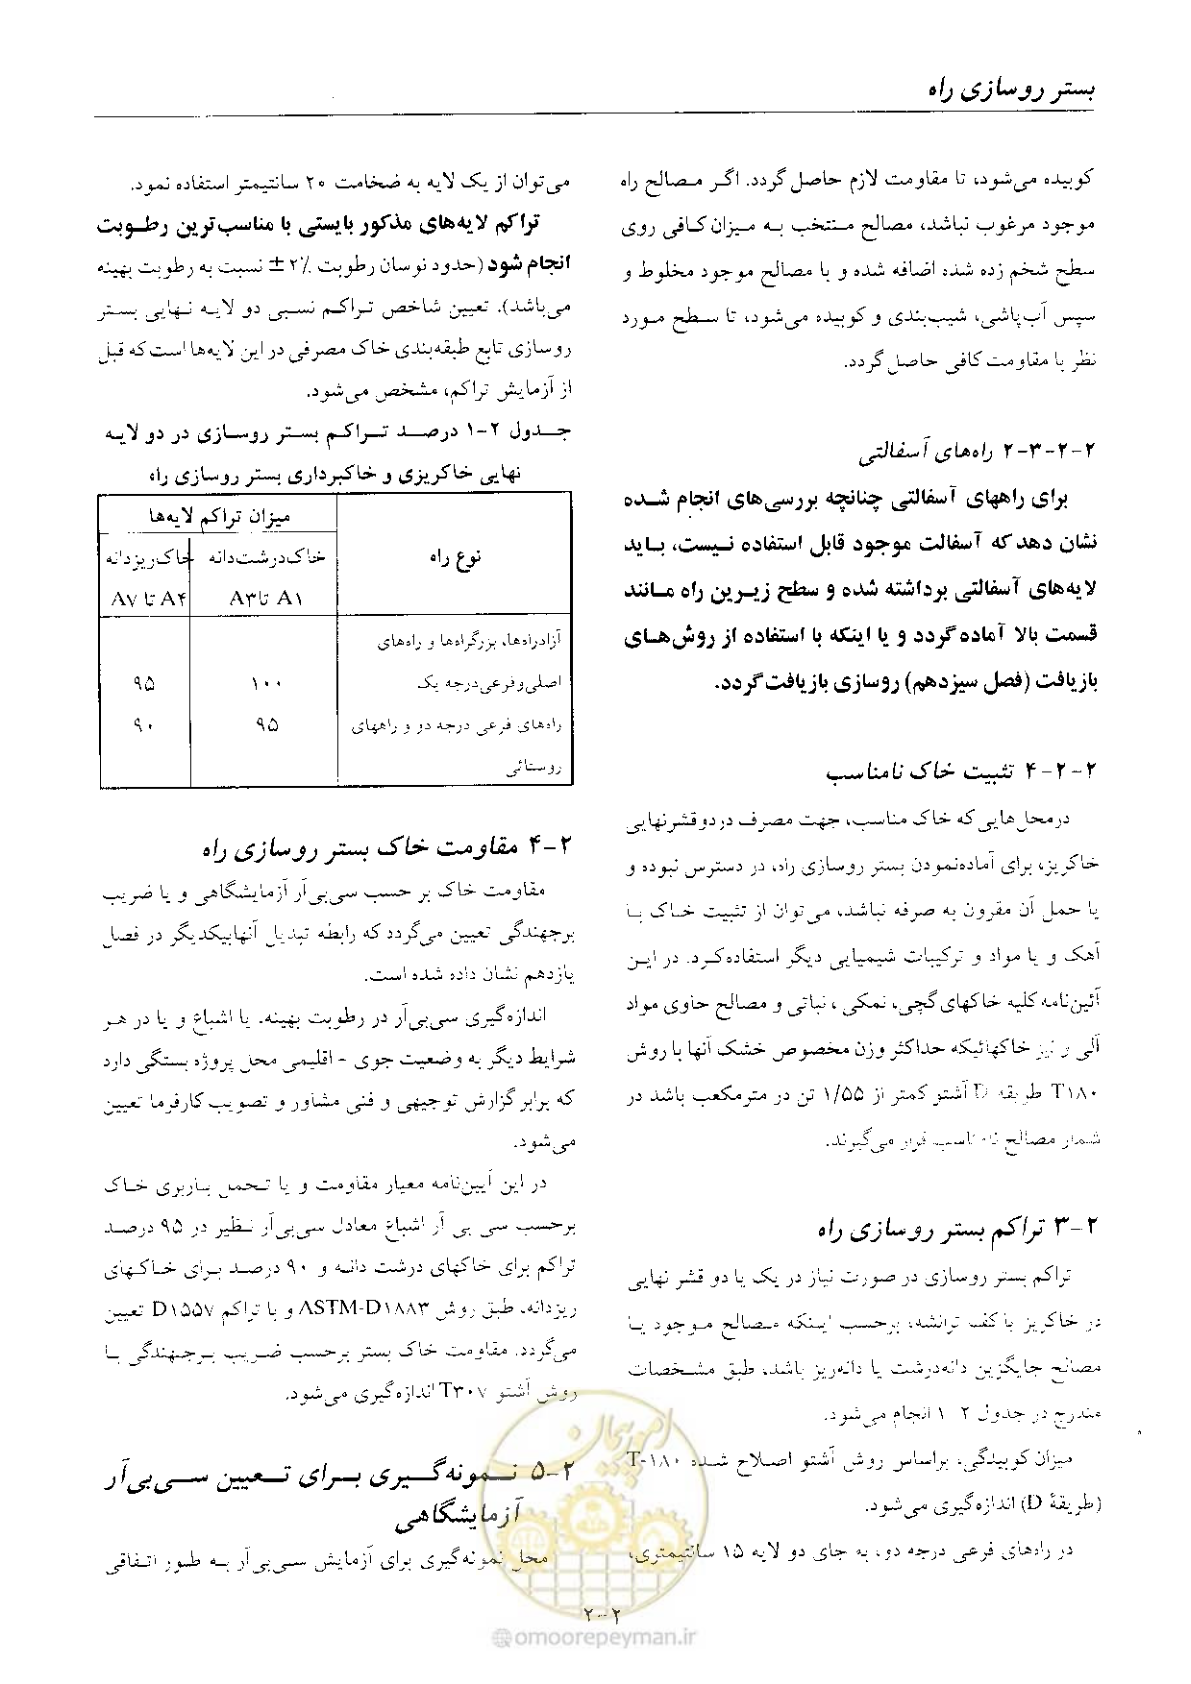 بستر روسازی راه
کوبیده می‌شود، تا مقاومت لازم حاصل گردد. اگر مصالح راه
موجود مرغوب نباشد، مصالح منتخب به میزان کافی روی
سطح شخم زده شده اضافه شده و با مصالح موجود مخلوط و
سپس آب‌پاشی، شیب‌بندی و کوبیده می‌شود، تا سطح مورد
نظر با مقاومت کافی حاصل گردد.
۲-۲-۳-۲ راه‌های آسفالتی
برای راههای آسفالتی چنانچه بررسی‌های انجام شده
نشان دهد که آسفالت موجود قابل استفاده نیست، باید
لایه‌های آسفالتی برداشته شده و سطح زیرین راه مانند
قسمت بالا آماده گردد و یا اینکه با استفاده از روش‌های
بازیافت (فصل سیزدهم) روسازی بازیافت گردد.
۲-۲-۴ تثبیت خاک نامناسب
درمحل‌هایی که خاک مناسب، جهت مصرف در دو قشر نهایی
خاکریز، برای آماده‌نمودن بستر روسازی راه، در دسترس نبوده و
یا حمل آن مقرون به صرفه نباشد، می‌توان از تثبیت خاک با
آهک و یا مواد و ترکیبات شیمیایی دیگر استفاده‌کرد. در این
آئین‌نامه کلیه خاکهای گچی، نمکی، نباتی و مصالح حاوی مواد
آلی و نیز خاکهائیکه حداکثر وزن مخصوص خشک آنها با روش
T۱۸۰ طریقه D آشتو کمتر از ۱/۵۵ تن در مترمکعب باشد در
شمار مصالح نامناسب قرار می‌گیرند.
۲-۳ تراکم بستر روسازی راه
تراکم بستر روسازی در صورت نیاز در یک یا دو قشر نهایی
در خاکریز یا کف ترانشه، برحسب اینکه مصالح موجود یا
مصالح جایگزین دانه‌درشت یا دانه‌ریز باشد، طبق مشخصات
مندرج در جدول ۲-۱ انجام می‌شود.
میزان کوبیدگی، براساس روش آشتو اصلاح شده T-۱۸۰
(طریقهٔ D) اندازه‌گیری می‌شود.
در راه‌های فرعی درجه دو، به جای دو لایه ۱۵ سانتیمتری،
می‌توان از یک لایه به ضخامت ۲۰ سانتیمتر استفاده نمود.
تراکم لایه‌های مذکور بایستی با مناسب‌ترین رطوبت
انجام شود (حدود نوسان رطوبت ۲٪± نسبت به رطوبت بهینه
می‌باشد). تعیین شاخص تراکم نسبی دو لایه نهایی بستر
روسازی تابع طبقه‌بندی خاک مصرفی در این لایه‌ها است که قبل
از آزمایش تراکم، مشخص می‌شود.
جدول ۲-۱ درصد تراکم بستر روسازی در دو لایه
نهایی خاکریزی و خاکبرداری بستر روسازی راه
میزان تراکم لایه‌ها
نوع راه خاک‌درشت‌دانه خاک‌ریزدانه
A۱ تا A۳ A۴ تا A۷
آزادراه‌ها، بزرگراه‌ها و راه‌های
اصلی‌و‌فرعی‌درجه یک ۱۰۰ ۹۵
راه‌های فرعی درجه دو و راههای ۹۵ ۹۰
روستائی
۲-۴ مقاومت خاک بستر روسازی راه
مقاومت خاک بر حسب سی‌بی‌آر آزمایشگاهی و یا ضریب
برجهندگی تعیین می‌گردد که رابطه تبدیل آنهابیکدیگر در فصل
یازدهم نشان داده شده است.
اندازه‌گیری سی‌بی‌آر در رطوبت بهینه، یا اشباع و یا در هر
شرایط دیگر به وضعیت جوی - اقلیمی محل پروژه بستگی دارد
که برابر گزارش توجیهی و فنی مشاور و تصویب کارفرما تعیین
می‌شود.
در این آیین‌نامه معیار مقاومت و یا تحمل باربری خاک
برحسب سی بی آر اشباع معادل سی‌بی‌آر نظیر در ۹۵ درصد
تراکم برای خاکهای درشت دانه و ۹۰ درصد برای خاکهای
ریزدانه، طبق روش ASTM-D۱۸۸۳ و با تراکم D۱۵۵۷ تعیین
می‌گردد. مقاومت خاک بستر برحسب ضریب برجهندگی با
روش آشتو T۳۰۷ اندازه‌گیری می‌شود.
۲-۵ نمونه‌گیری برای تعیین سی‌بی‌آر
آزمایشگاهی
محل نمونه‌گیری برای آزمایش سی‌بی‌آر به طور اتفاقی
۲-۲
امور پیمان
@omoorepeyman.ir